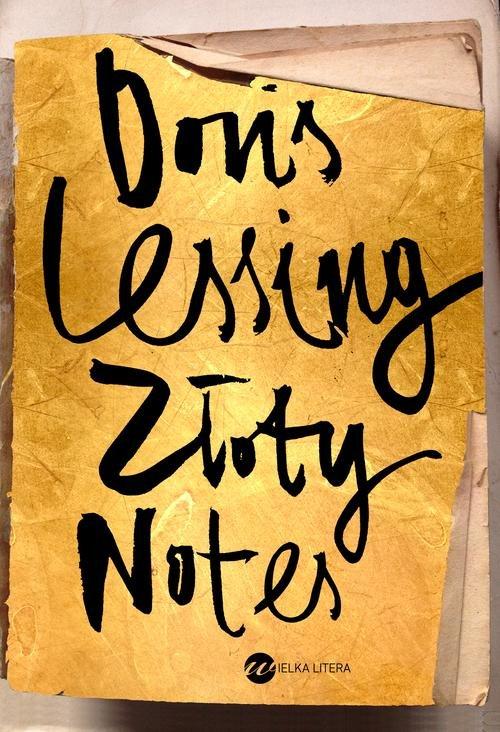 Doris
Lessing
Złoty
Notes
WIELKA LITERA